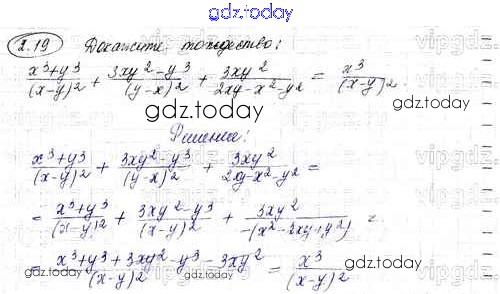 gdz.today
2.19 Докажите тождество:
(x³+y³)/(x-y)² + (3xy²-y³)/(y-x)² + 3xy²/(2xy-x²-y²) = x³/(x-y)².
gdz.today
Решение:
(x³+y³)/(x-y)² + (3xy²-y³)/(y-x)² + 3xy²/(2xy-x²-y²) =
= (x³+y³)/(x-y)² + (3xy²-y³)/(x-y)² + 3xy²/(-(x²-2xy+y²)) =
= (x³+y³+3xy²-y³-3xy²)/(x-y)² = x³/(x-y)²
gdz.today